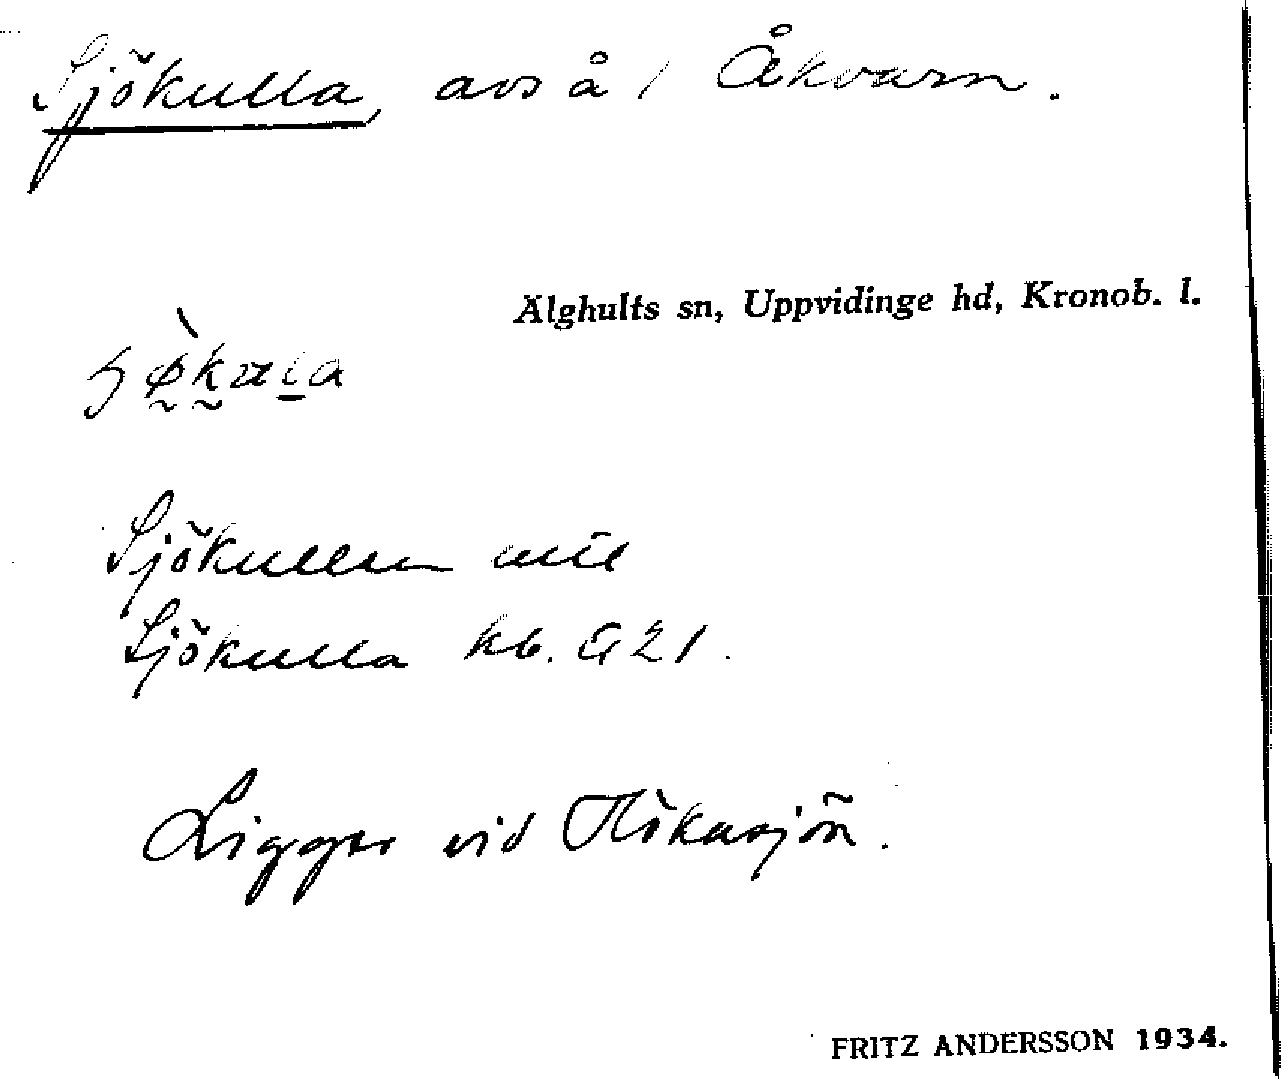 Sjökulla, avs å 1 Åkvarn.
Älghults sn, Uppvidinge hd, Kronob. l.
Sjökullen
Sjökulla kb. G 21.
Ligger vid Hökasjön.
FRITZ ANDERSSON 1934.